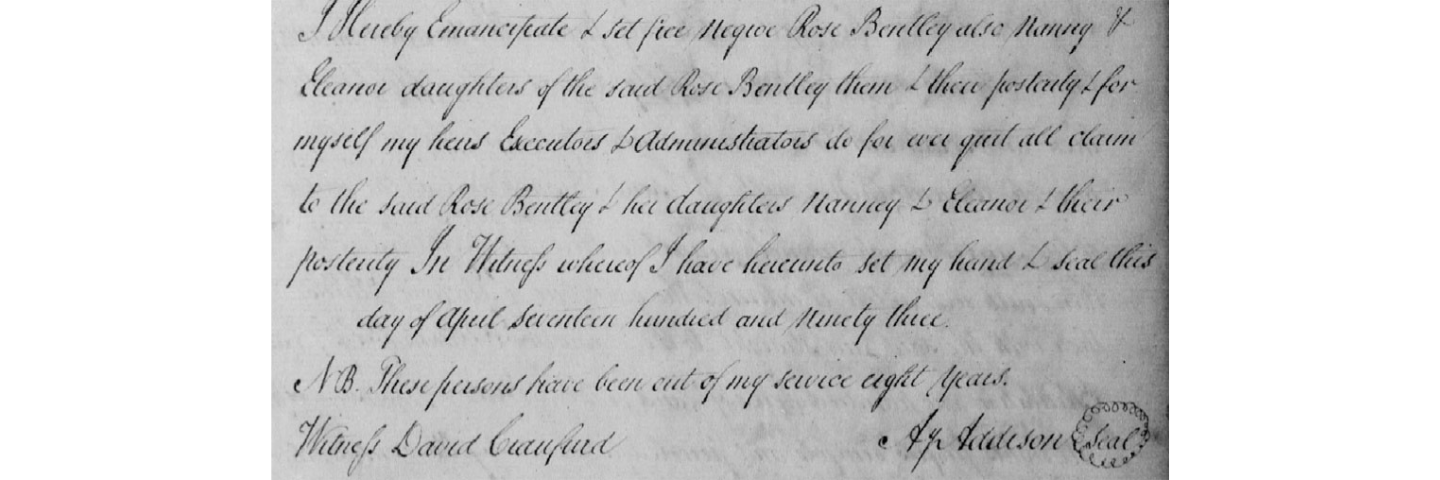 I Hereby Emancipate & set free Negroe Rose Bentley also Nanny &
Eleanor daughters of the said Rose Bentley them & their posterity & for
myself my heirs Executors & Administrators do for ever quit all claim
to the said Rose Bentley & her daughters Nanney & Eleanor & their
posterity In Witness whereof I have hereunto set my hand & seal this
day of April Seventeen hundred and Ninety three.
NB. These persons have been out of my service eight Years.
Witness David Craufurd Addison Seal